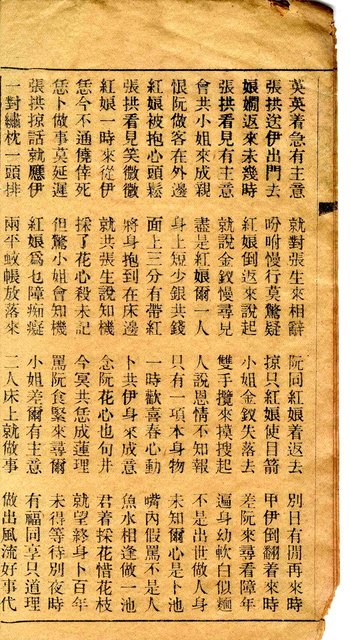 英英着急有主意 就對張生來相辭 阮同紅娘着返去 別日有閒再來時
張拱送伊出門去 吩咐慢行莫驚疑 掠只紅娘使目箭 甲伊倒翻着來時
娘嫺返來未幾時 紅娘倒返來說起 小姐金釵失落去 差阮來尋看障年
張拱看見有主意 就說金釵慢尋見 雙手攬來摸搜起 遍身幼軟白似麵
會共小姐來成親 盡是紅娘爾一人 人說恩情不知報 不是出世做人身
恨阮做客在外邊 身上短少銀共錢 只有一項本身物 未知爾心是卜池
紅娘被抱心頭鬆 面上三分有帶紅 一時歡喜春心動 嘴內假罵不是人
張拱看見笑微微 將身抱到在床邊 卜共伊身來成意 魚水相逢做一池
紅娘一時來從伊 就共張生說知機 念阮花心也句井 君着採花惜花枝
恁今不通僥倖死 採了花心殺未記 今冥共恁成蓮理 就望終身卜百年
恁卜做事莫延遲 但驚小姐會知機 罵阮食緊來尋爾 未得等待別夜時
張拱掠話就應伊 紅娘爲乜障痴癡 小姐差爾有主意 有福同享只道理
一對繡枕一頭排 兩平蚊帳放落來 二人床上就做事 做出風流好事代